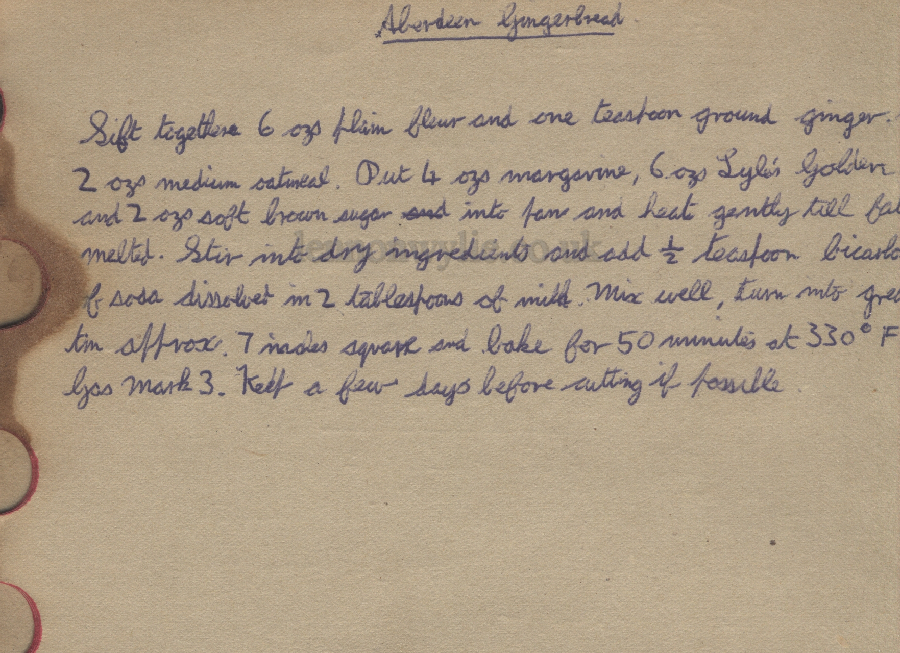 Aberdeen Gingerbread
Sift together 6 ozs plain flour and one teaspoon ground ginger.
2 ozs medium oatmeal. Put 4 ozs margarine, 6 ozs Lyle's Golden
and 2 ozs soft brown sugar and into pan and heat gently till fat
melted. Stir into dry ingredients and add ½ teaspoon bicarb
of soda dissolved in 2 tablespoons of milk. Mix well, turn into grea
tin approx. 7 inches square and bake for 50 minutes at 330° F
Gas Mark 3. Keep a few days before cutting if possible